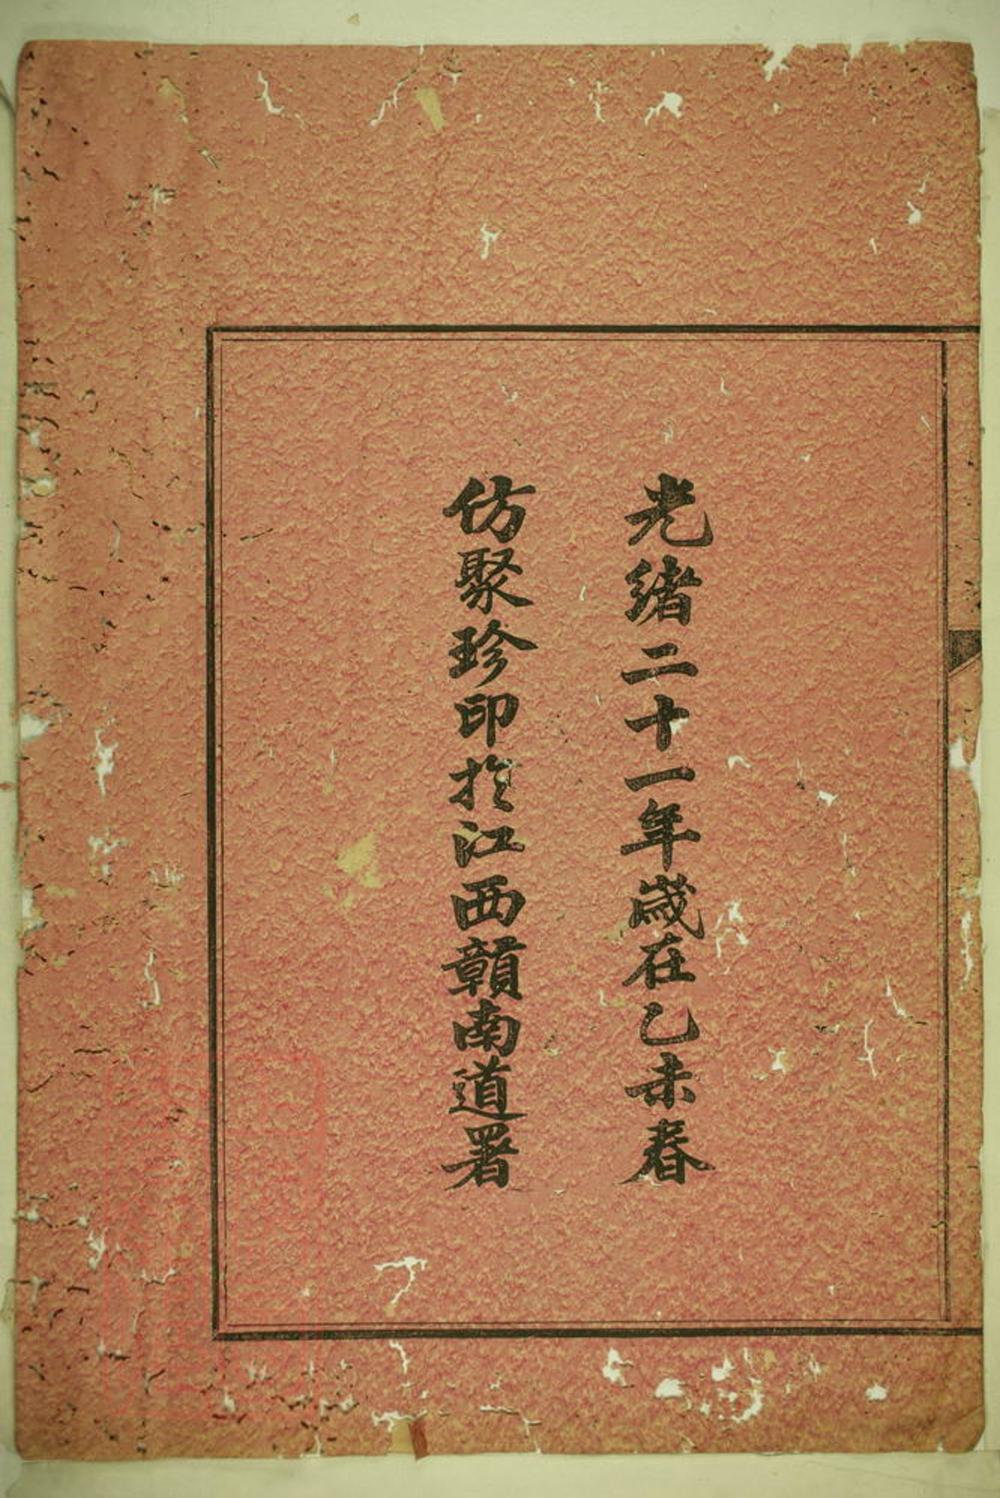 光緒二十一年歲在乙未春
仿聚珍印於江西贛南道署